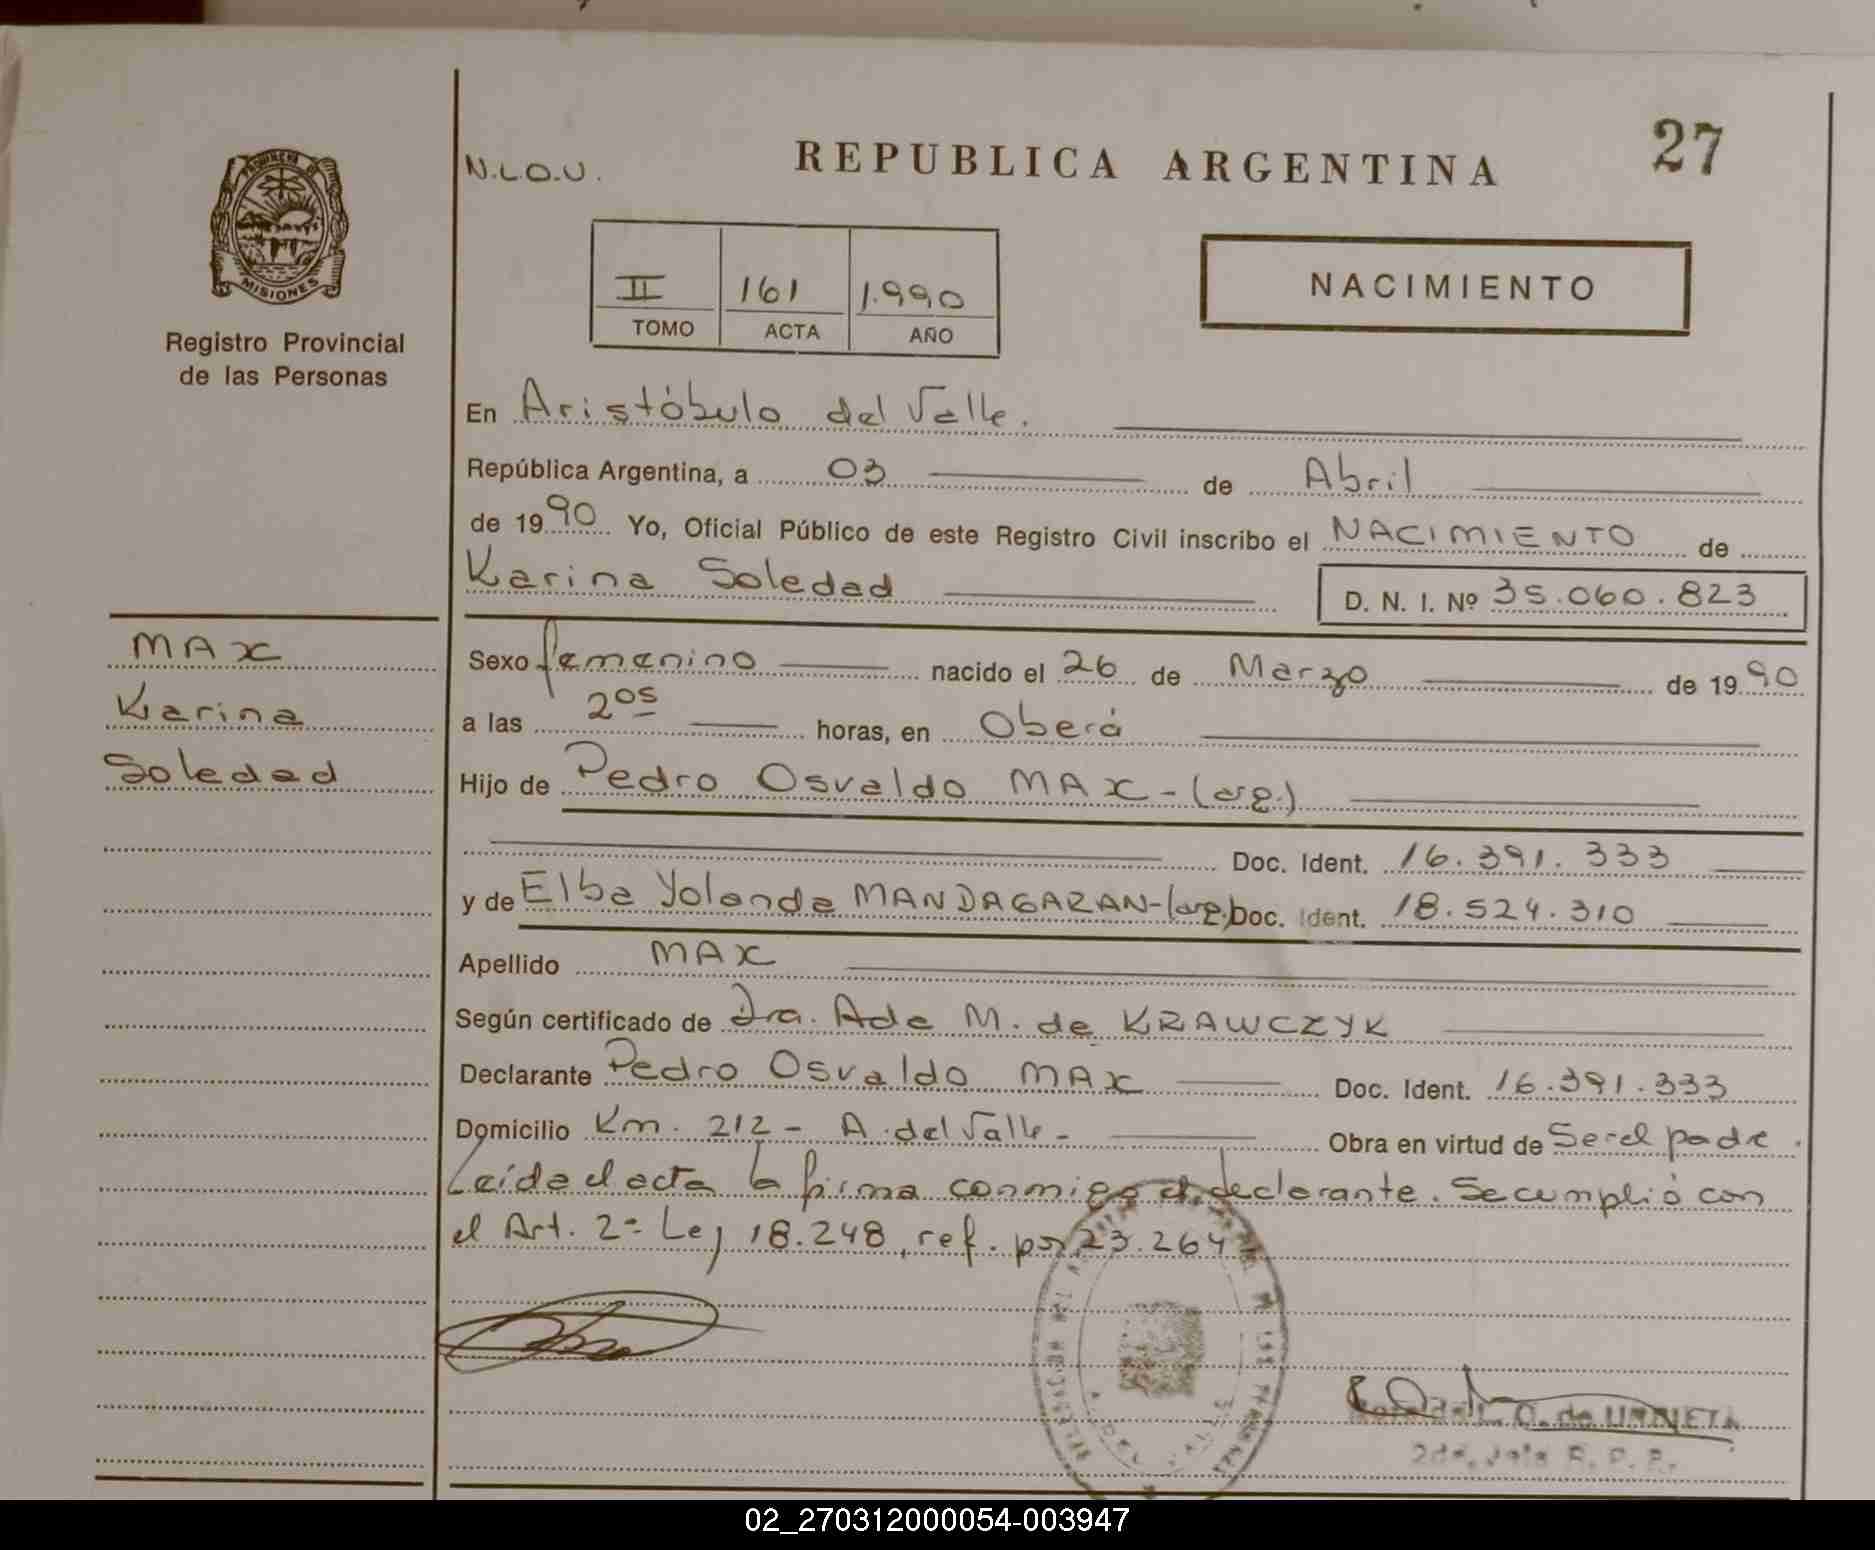 27
N.L.O.U.
REPUBLICA ARGENTINA
PROVINCIA DE
MISIONES
Registro Provincial
de las Personas
II 161 1.990
TOMO ACTA AÑO
NACIMIENTO
En Aristóbulo del Valle.
República Argentina, a 03 de Abril
de 1990 Yo, Oficial Público de este Registro Civil inscribo el NACIMIENTO de
Karina Soledad D. N. I. Nº 35.060.823
MAX
Karina
Soledad
Sexo femenino nacido el 26 de Marzo de 1990
a las 2⁰⁵ horas, en Oberá
Hijo de Pedro Osvaldo MAX - (arg.)
Doc. Ident. 16.391.333
y de Elba Yolanda MANDAGARAN - (arg.) Doc. Ident. 18.524.310
Apellido MAX
Según certificado de Dra. Ada M. de KRAWCZYK
Declarante Pedro Osvaldo MAX Doc. Ident. 16.391.333
Domicilio Km. 212 - A. del Valle - Obra en virtud de Ser el padre.
Leída el acta la firma conmigo el declarante. Se cumplió con
el Art. 2º Ley 18.248, ref. por 23.264
O. de URRIETA
2da. Jefe R. P. P.
02_270312000054-003947